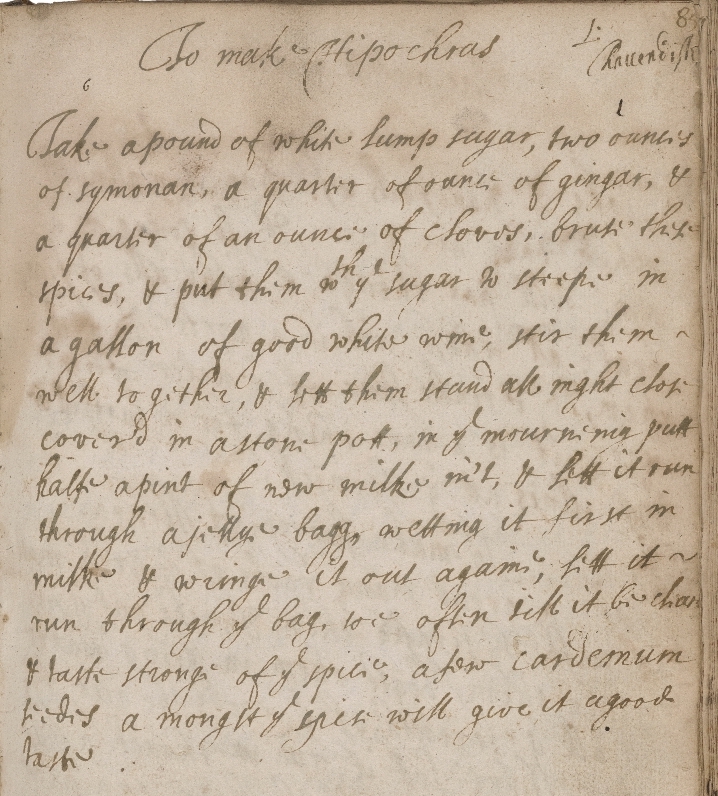 To make Hipochras
L:
6
Take a pound of white lump sugar, two ounces
of symonan, a quarter of ounce of gingar, &
a quarter of an ounce of cloves, bruse these
spices, & put them wth ye sugar to steepe in
a gallon of good white wine, stir them ~
well together, & lett them stand all night close
coverd in a stone pott, in ye mourning putt
halfe a pint of new milke in't, & lett it run
through a jellye bagg, wetting it first in
milke & wringe it out againe, lett it ~
run through ye bag, soe often till it be clear
& taste stronge of ye spice, a few cardemum
seedes a mongst ye spice will give it a good
taste